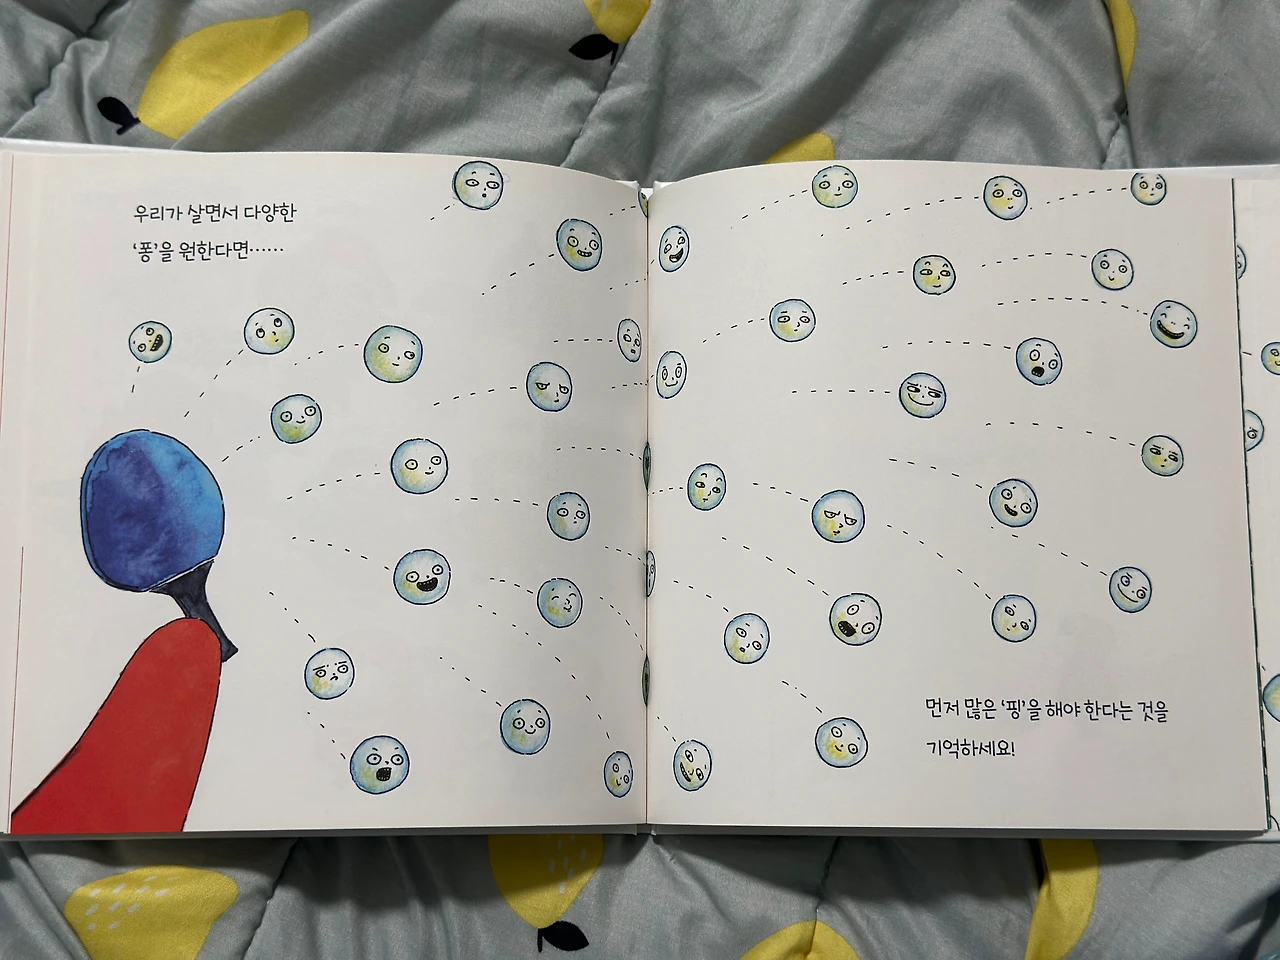 우리가 살면서 다양한
‘퐁’을 원한다면……
먼저 많은 ‘핑’을 해야 한다는 것을
기억하세요!